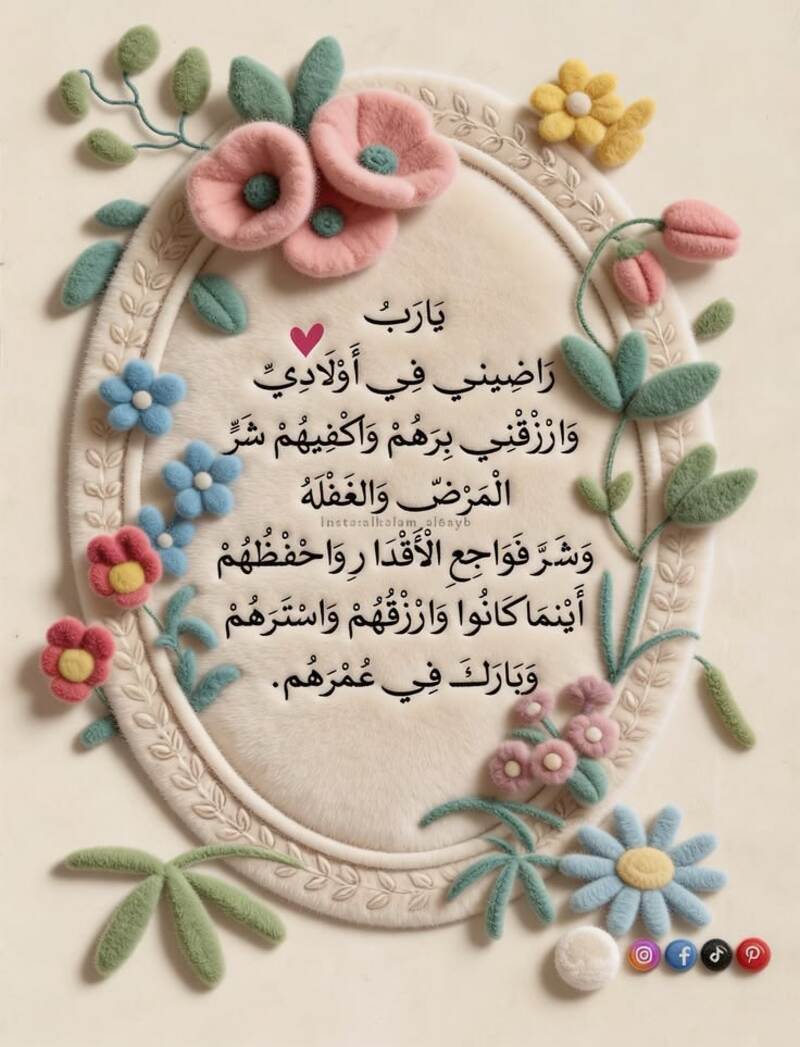 يَارَبُ
رَاضِيني فِي أَوْلَادِيِّ
وَارْزْقْنِي بِرَهُمْ وَاكْفِيهُمْ شَرٍّ
الْمَرْضّ وَالغَفْلَهُ
insta:alkalam_al6ayb
وَشَرَّ فَوَاجِعِ الْأَقْدَا رِ وَاحْفْظُهُمْ
أَيْنمَا كَانُوا وَارْزْقُهُمْ وَاسْتَرَهُمْ
وَبَارَكَ فِي عُمْرَهُم.